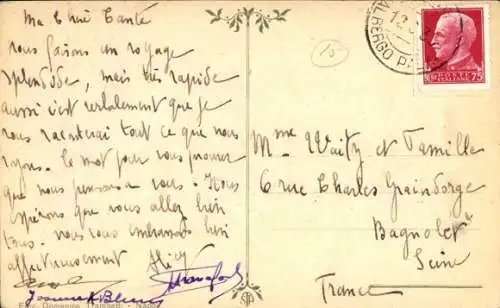 Ma Chère Tante
nous faisons un voyage
splendide, mais très rapide
aussi c'est verbalement que je
vous raconterai tout ce que nous
voyons. Ce mot pour vous prouver
que nous pensons a vous. Nous
espérons que vous allez bien
tous. nous vous embrassons bien
affectueusement
ALBERGO
POSTE ITALIANE
75
15
Mme Waity et Famille
6 rue Charles Graindorge
Bagnolet
Seine
France